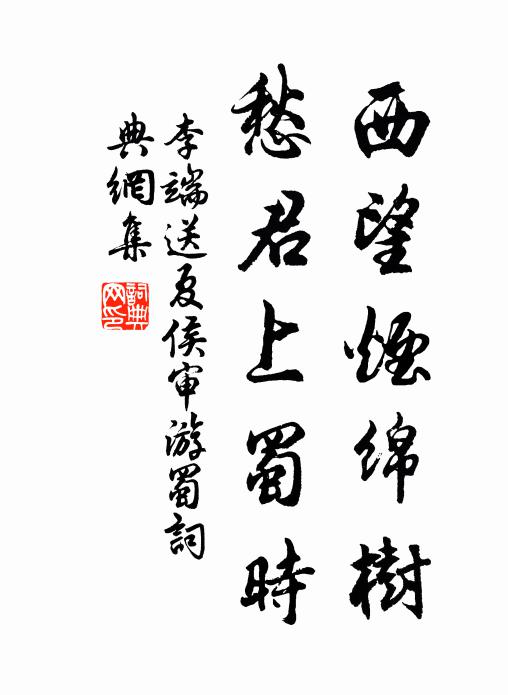 西望煙綿樹
愁君上蜀時
李端送夏侯审游蜀詞
典網集
詞典
网印